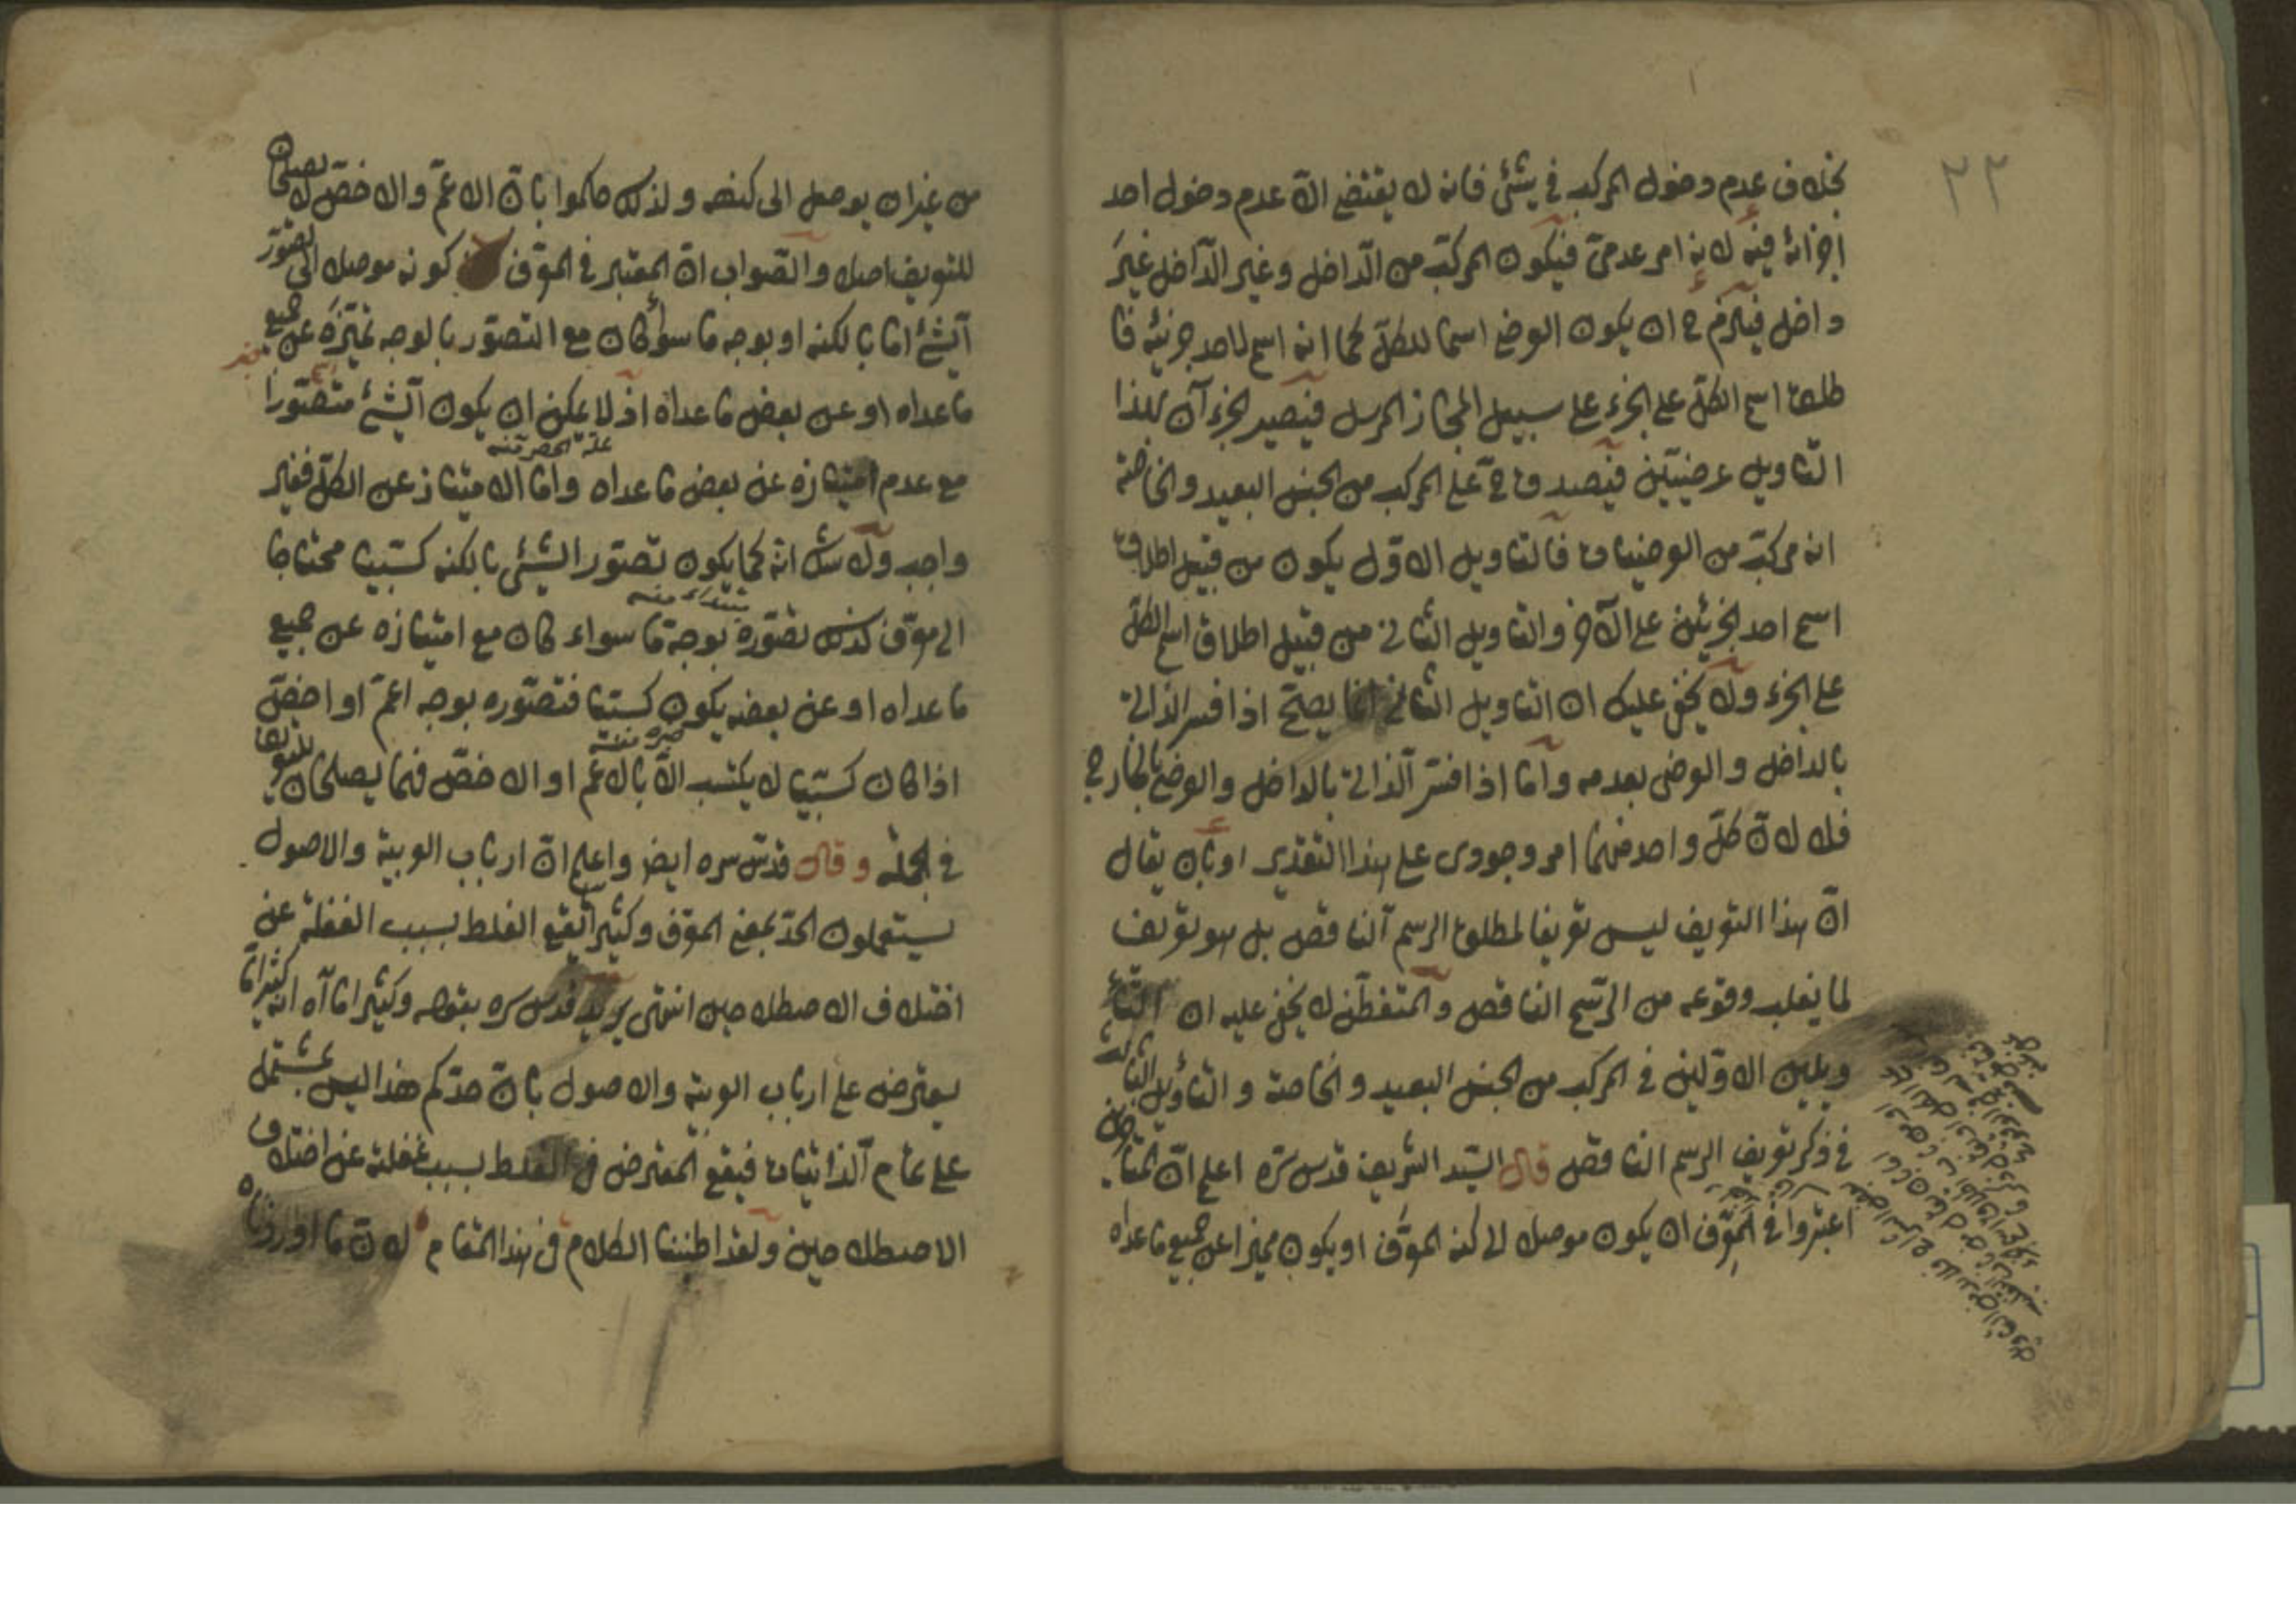 ٢٣
بخلاف عدم دخول المركب في شئ فانه لا يقتضي الّا عدم دخول احد
اجزائه فيه لانه امر عدميّ فيكون المركّب من الدّاخل وغير الدّاخل غيرَ
داخل فيلزم ح ان يكون العرضي اسما للكلّ كما انه اسم لاحد جزئيه فا
طلق اسم الكلّ على الجزء على سبيل المجاز المرسل فيصير الجزء آن بهذا
التاويل عرضيّين فيصدق ح على المركب من الجنس البعيد والخاصّة
انه مركّب من العرضيات فالتاويل الاوّل يكون من قبيل اطلاق
اسم احد الجزئين على الآخر والتاويل الثاني من قبيل اطلاق اسم الكلّ
على الجزء ولا يخفى عليك ان التاويل الثاني انما يصحّ اذا فسر الذاتي
بالداخل والعرضي بعدمه وامّا اذا فسّر الذاتي بالداخل والعرضي بالخارج
فلا لانّ كلّ واحد منهما امر وجودى على هذا التقدير اوبان يقال
انّ هذا التعريف ليس تعريفا لمطلق الرسم الناقص بل هو تعريف
لما يغلب وقوعه من الرّسم الناقص والمتفطّن لا يخفى عليه ان التأ
ويلين الاوّلين في المركب من الجنس البعيد والخاصة والتأويل الثالث
في ذكر تعريف الرسم الناقص قال السّيد الشريف قدس سرّه اعلم انّ المتأخرين
اعتبروا في المعرّف ان يكون موصلا الى كنه المعرَّف او يكون مميزا عن جميع ما عداه
من غير ان يوصل الى كنهه ولذلك حكموا بانّ الاعمّ والاخصّ لا يصلحان
للتعريف اصلا والصّواب انّ المعتبر في المعرّف كونه موصلا الى تصوّر
الشئ امّا بالكنه او بوجه ما سواء كان مع التصوّر بالوجه تميّزَه عن جميع
ما عداه او عن بعض ما عداه اذ لا يمكن ان يكون الشئ متصّورا
علة الحصر منه
مع عدم امتيازه عن بعض ما عداه وامّا الامتياز عن الكلّ فغير
واجب ولا شك انّه كما يكون تصوّر الشئ بالكنه كسبيا محتاجا
مبتداء منه
الى معرّف كذلك تصوّره بوجه ما سواء كان مع امتيازه عن جميع
ما عداه او عن بعضه يكون كسبيا فتصوّره بوجه اعمّ او اخصّ
خبره منه
اذا كان كسبيا لا يكتسب الّا بالاعم او الاخصّ فهما يصلحان للتعريف
في الجملة وقال قدّس سره ايضا واعلم انّ ارباب العربية والاصول
يستعملون الحدّ بمعنى المعرّف وكثيرا يقع الغلط بسبب الغفلة عن
اختلاف الاصطلاحين انتهى يريد قدس سره بقوله وكثيرا ما آه انه كثيرا ما
يعترض على ارباب العربية والاصول بانّ حدّكم هذا ليس بمشتمل
على تمام الذاتيات فيقع المعترض في الغلط بسبب غفلته عن اختلاف
الاصطلاحين ولقد اطنبنا الكلام في هذا المقام لانّ ما اوردناه